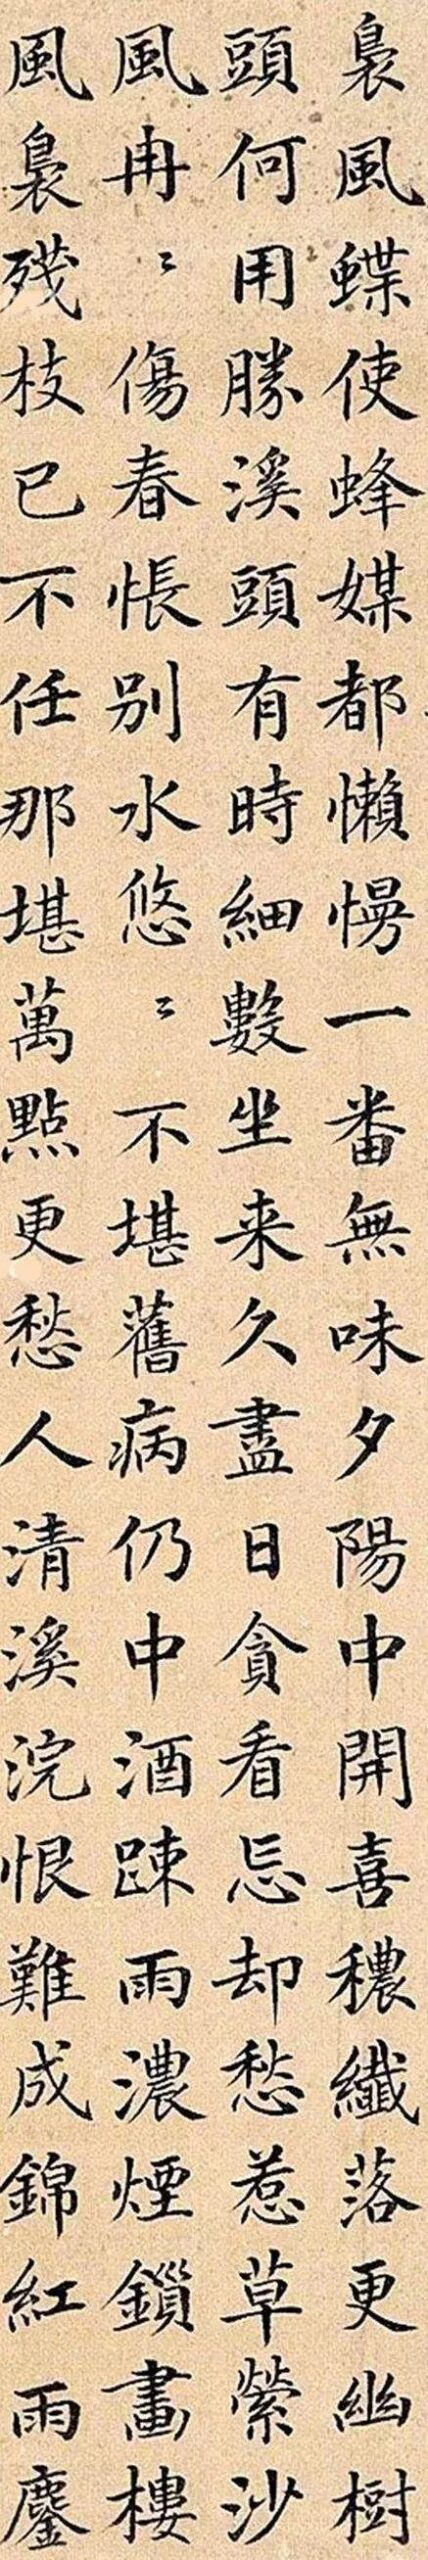 裊風蝶使蜂媒都懶慢一番無味夕陽中開喜穠纖落更幽樹
頭何用勝溪頭有時細數坐来久盡日貪看忘却愁惹草縈沙
風冉〻傷春悵別水悠〻不堪舊病仍中酒踈雨濃煙鎖畫樓
風裊殘枝已不任那堪萬點更愁人清溪浣恨難成錦紅雨鏖